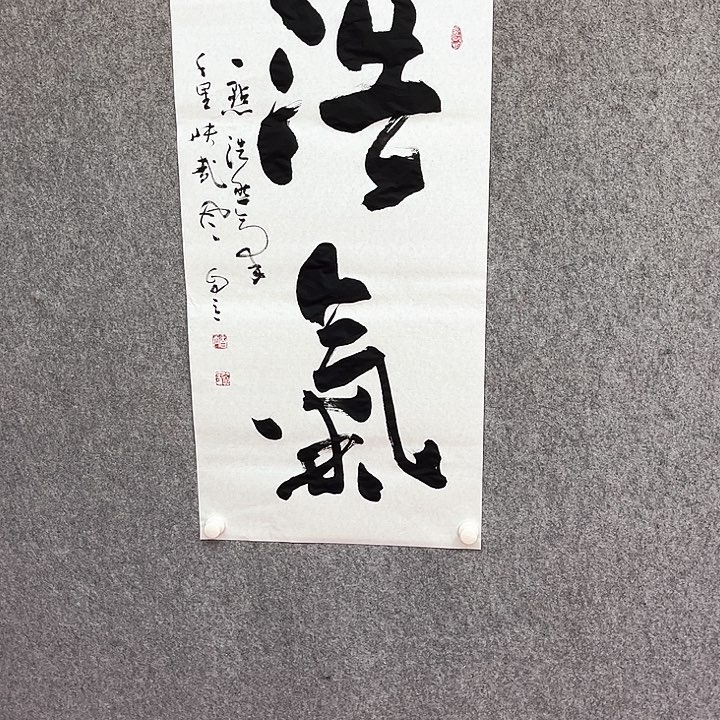 浩
氣
一點浩然氣
千里快哉風